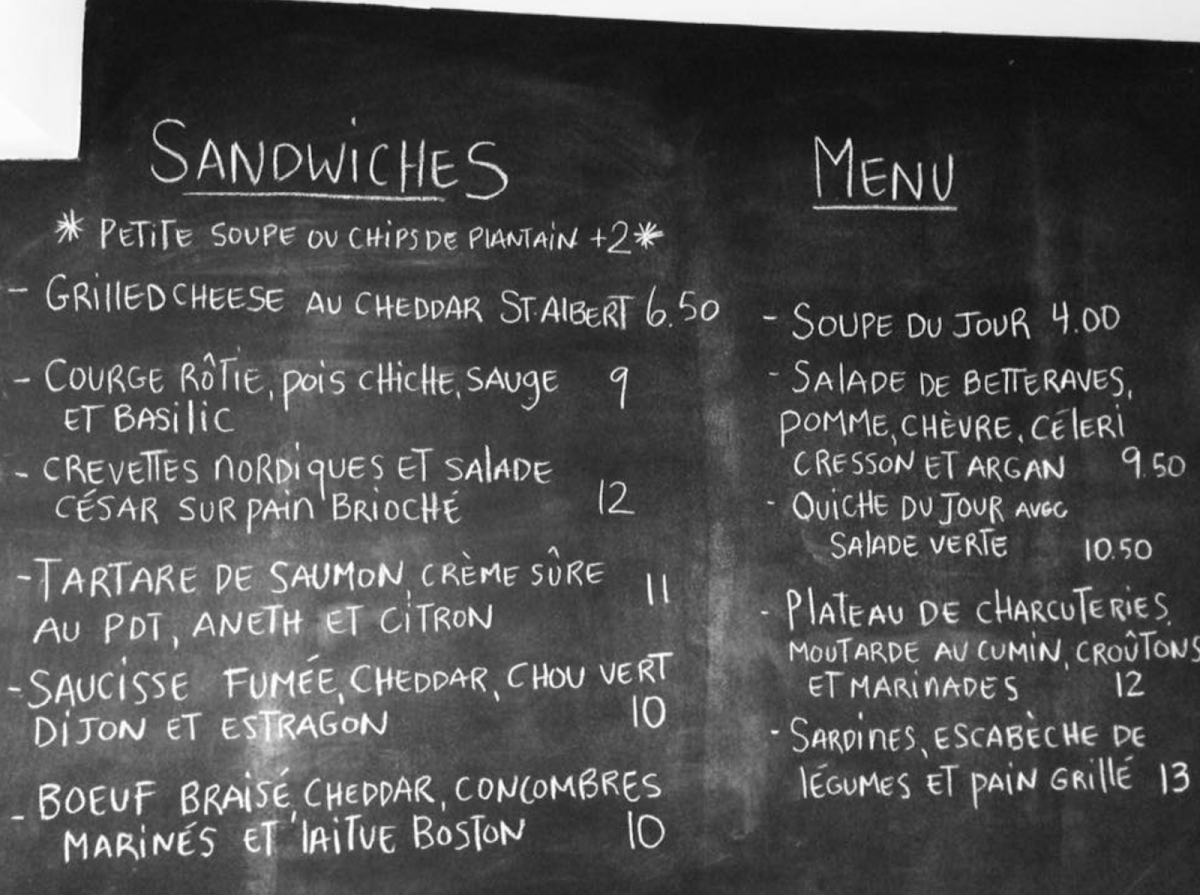 SANDWICHES
* PETITE SOUPE OU CHIPS DE PLANTAIN +2 *
- GRILLED CHEESE AU CHEDDAR ST.ALBERT 6.50
- COURGE RÔTIE, pois CHICHE, SAUGE 9
ET BASILIC
- CREVETTES NORDIQUES ET SALADE
CÉSAR SUR PAIN BRIOCHÉ 12
- TARTARE DE SAUMON, CRÈME SÛRE 11
AU PDT, ANETH ET CITRON
- SAUCISSE FUMÉE, CHEDDAR, CHOU VERT
DIJON ET ESTRAGON 10
- BOEUF BRAISÉ, CHEDDAR, CONCOMBRES
MARINÉS ET LAITUE BOSTON 10
MENU
- SOUPE DU JOUR 4.00
- SALADE DE BETTERAVES,
POMME, CHÈVRE, CÉLERI
CRESSON ET ARGAN 9.50
- QUICHE DU JOUR AVEC
SALADE VERTE 10.50
- PLATEAU DE CHARCUTERIES,
MOUTARDE AU CUMIN, CROÛTONS
ET MARINADES 12
- SARDINES, ESCABÈCHE DE
LÉGUMES ET PAIN GRILLÉ 13